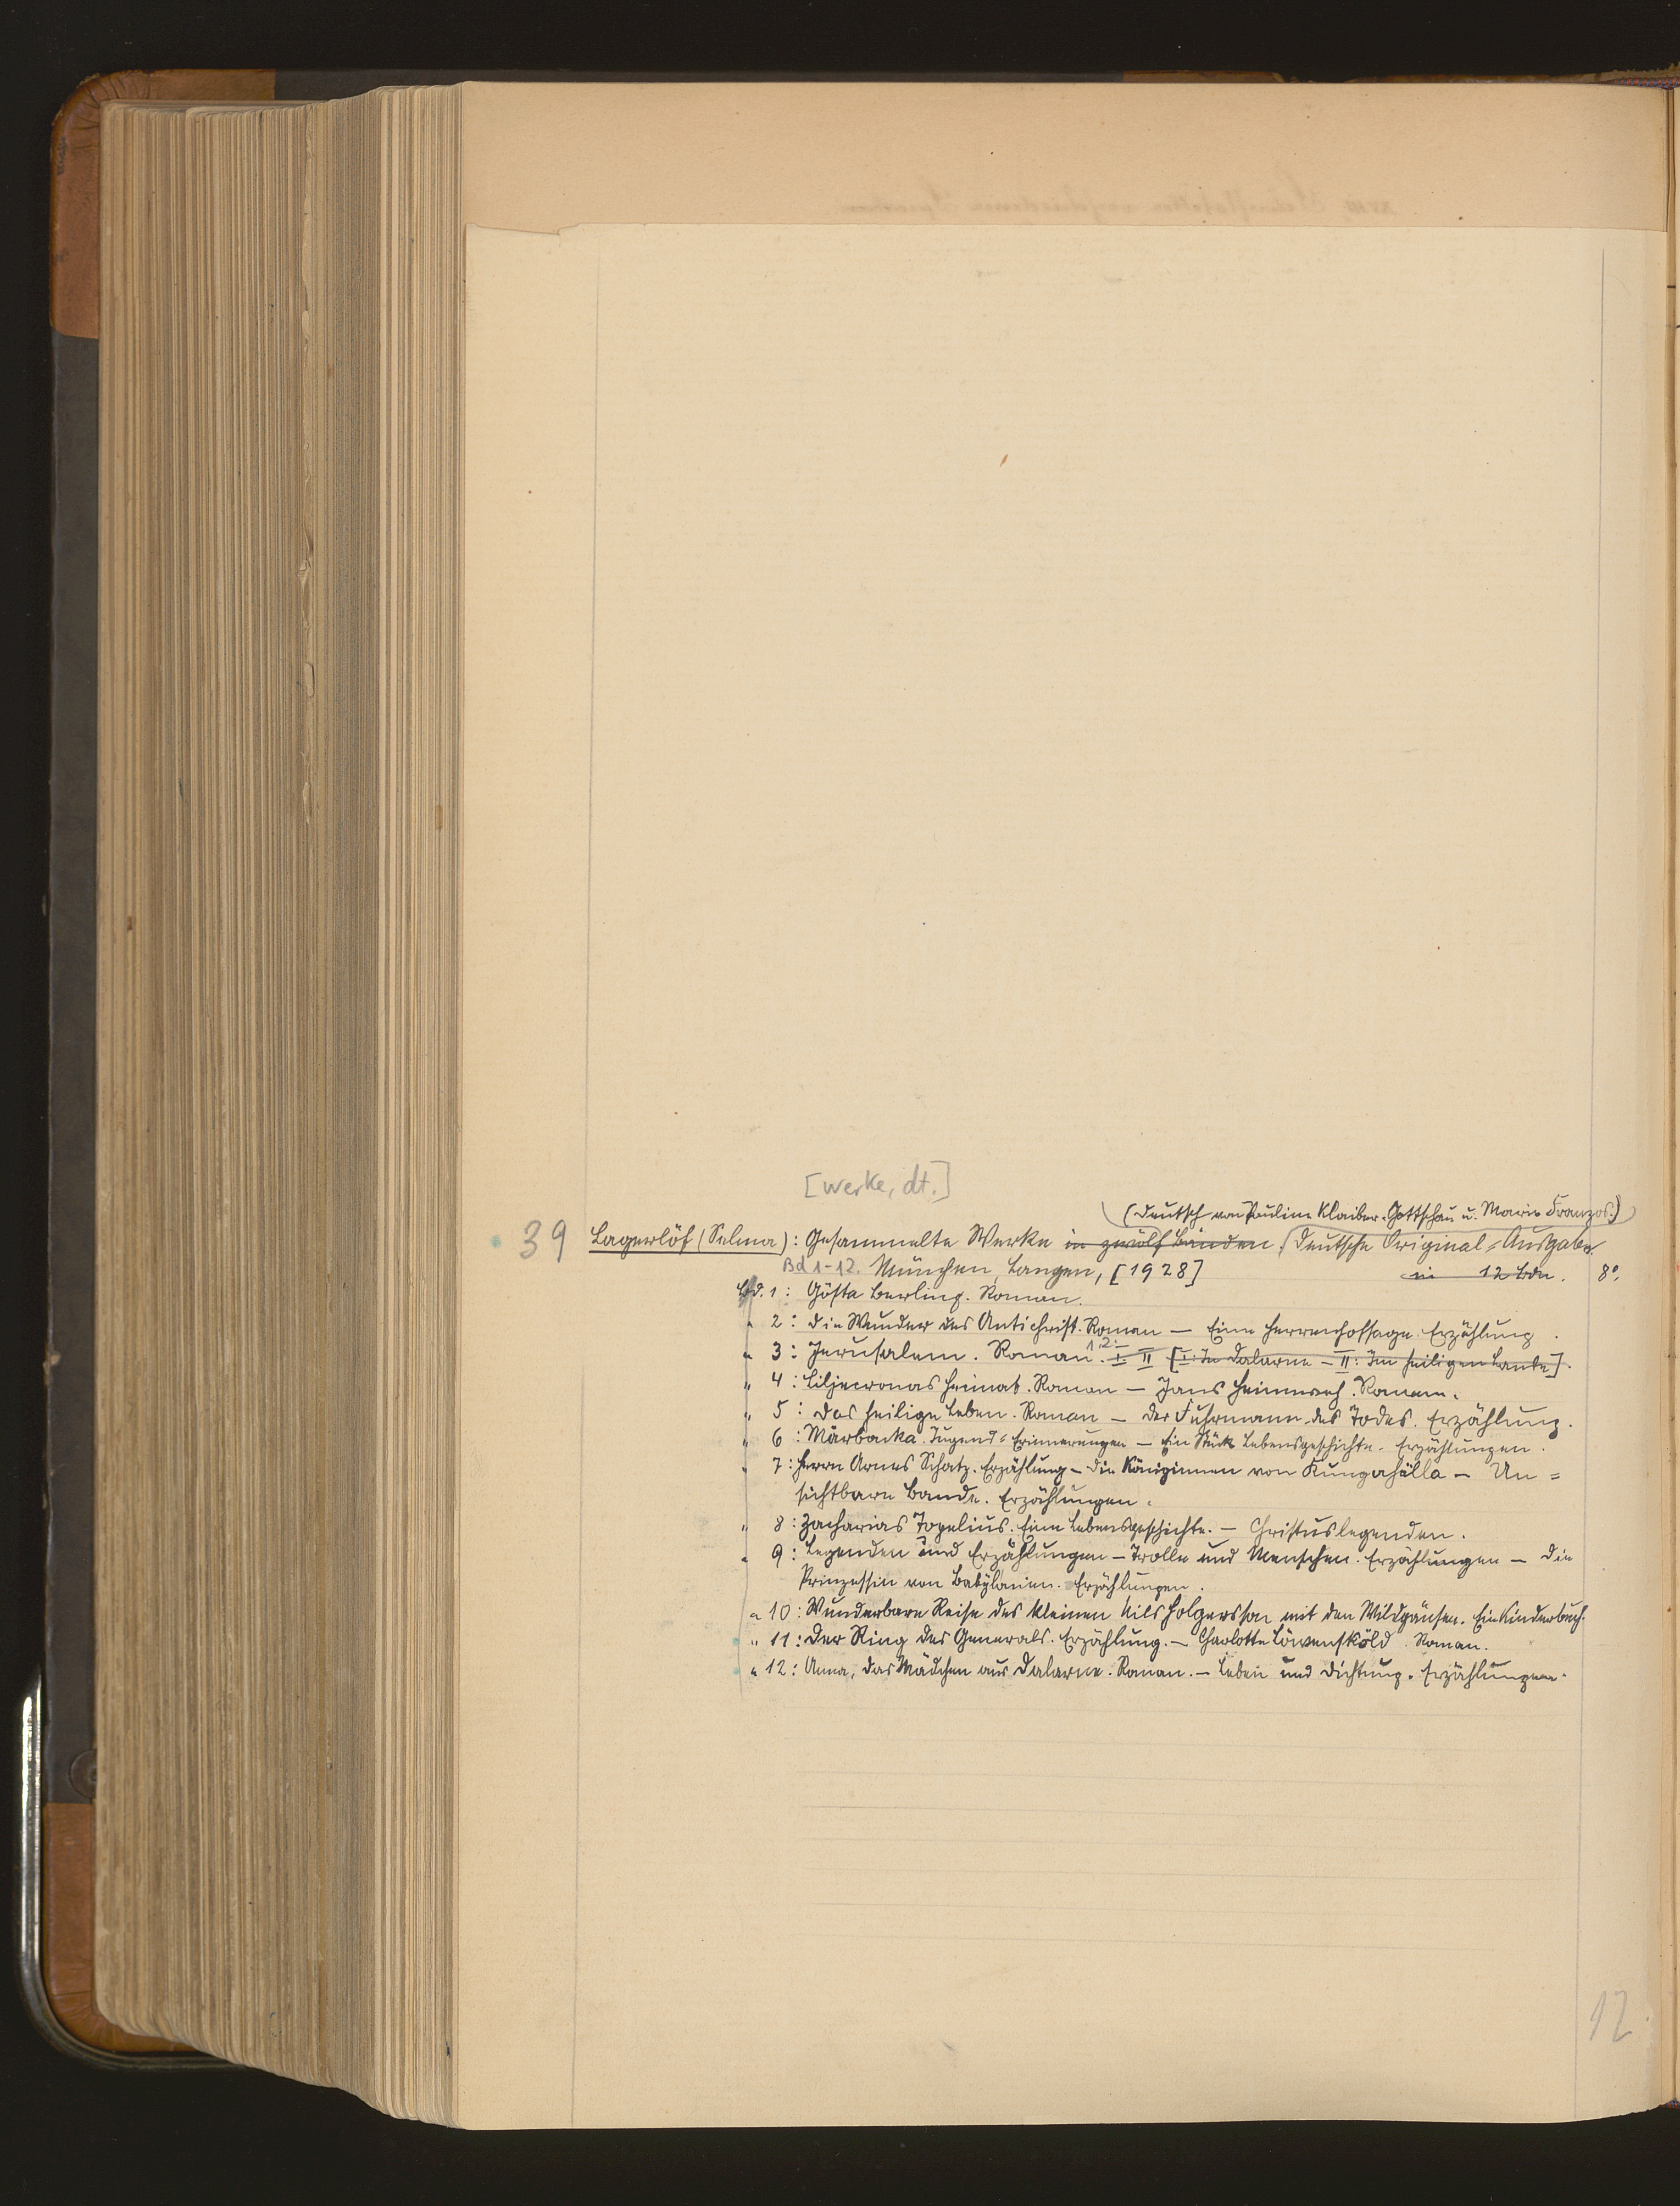 [Werke, dt.]
(Deutsch von Pauline Klaiber-Gottschau u. Marie Franzos.)
39 Lagerlöf (Selma): Gesammelte Werke in zwölf Bänden. Deutsche Original-Ausgabe
Bd 1-12. München, Langen, [1928] in 12 Bdn. 8°.
Bd. 1: Gösta Berling. Roman.
" 2: Die Wunder des Antichrist. Roman — Eine Herrenhofsage. Erzählung.
" 3: Jerusalem. Roman. 1.2. I II [I: In Dalarne — II: Im heiligen Lande].
" 4: Liljecronas Heimat. Roman — Jans Heimweh. Roman.
" 5: Das heilige Leben. Roman — Der Fuhrmann des Todes. Erzählung.
" 6: Mårbacka. Jugend-Erinnerungen — Ein Stück Lebensgeschichte. Erzählungen.
" 7: Herrn Arnes Schatz. Erzählung — Die Königinnen von Kungahälla — Un=
sichtbare Bande. Erzählungen.
" 8: Zacharias Topelius. Eine Lebensgeschichte. — Christuslegenden.
" 9: Legenden und Erzählungen — Trolle und Menschen. Erzählungen — Die
Prinzessin von Babylonien. Erzählungen.
" 10: Wunderbare Reise des kleinen Nils Holgersson mit den Wildgänsen. Ein Kinderbuch.
" 11: Der Ring des Generals. Erzählung. — Charlotte Löwensköld. Roman.
" 12: Anna, das Mädchen aus Dalarne. Roman. — Leben und Dichtung. Erzählungen.
12